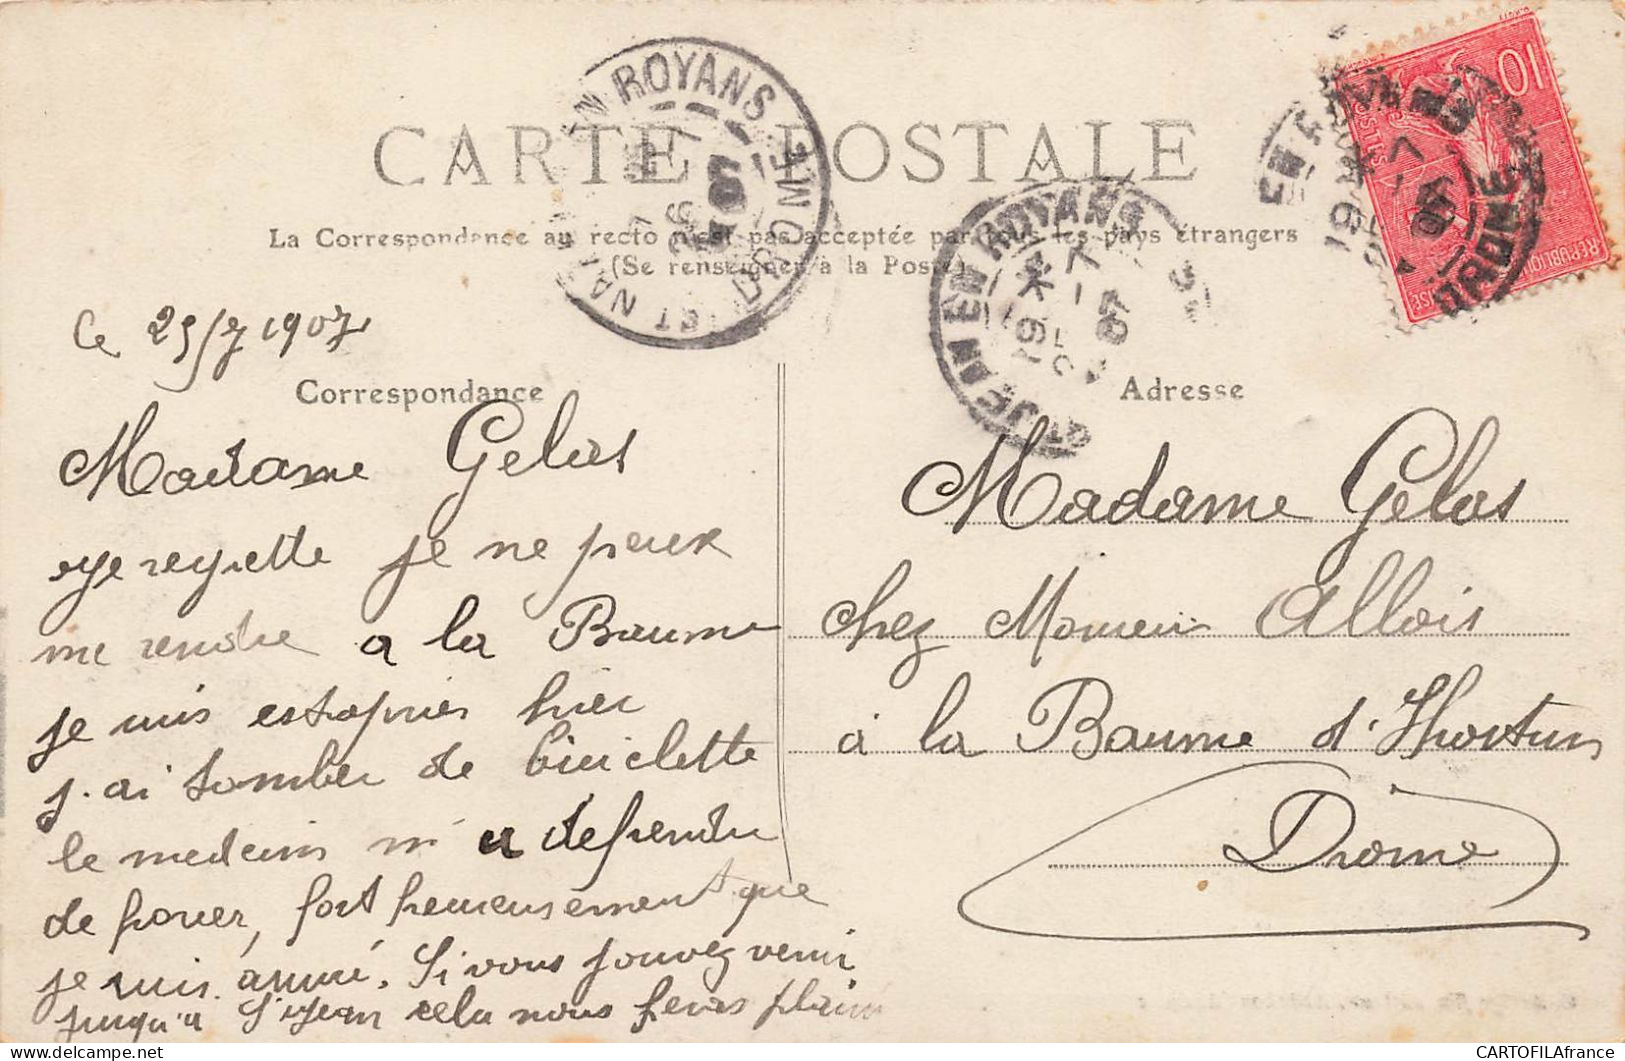 CARTE POSTALE
La Correspondance au recto n'est pas acceptée par tous les pays étrangers
(Se renseigner à la Poste)
EN ROYANS
ST NAZ
DROME
EN ROYANS
ST JEAN EN ROYANS
19
07
DROME
10
POSTES
REPUBLIQUE
Le 25/7 1907
Correspondance
Adresse
Madame Gelas
Je regrette je ne peux
me rendre a la Baume
je suis estropier hier
j.ai tomber de biciclette
le medecin m'a defendu
de forcer, fort heureusement que
je suis assuré. Si vous pouvez venir
jusqu'a St Jean cela nous feras plaisir
Madame Gelas
chez Monsieur Allois
à la Baume d'Hostun
Drome
CARTOFILAfrance